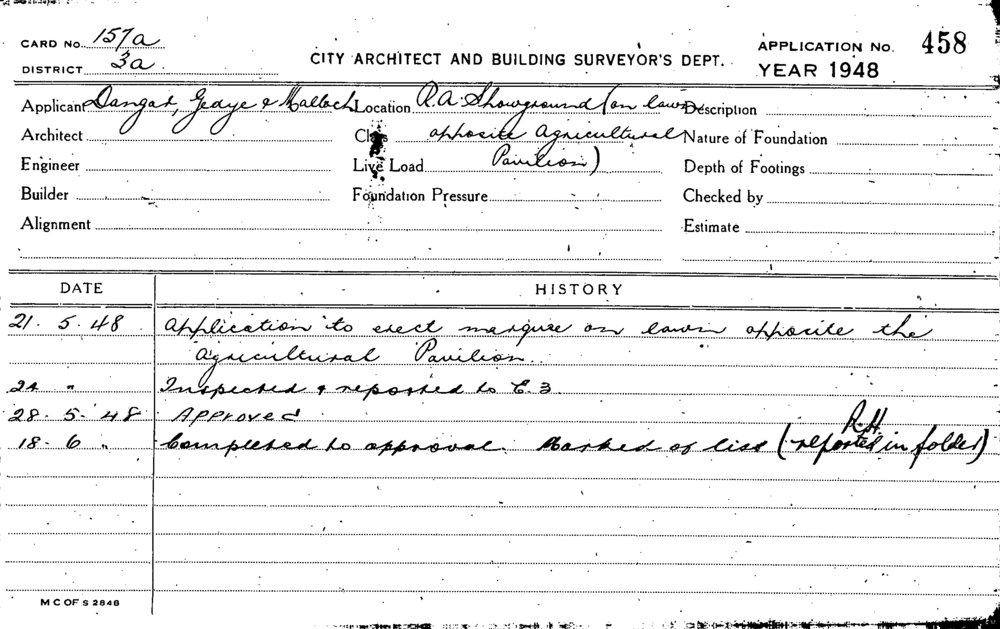 CARD No. 157a
DISTRICT 3a
CITY ARCHITECT AND BUILDING SURVEYOR'S DEPT.
APPLICATION No. 458
YEAR 1948
Applicant Dangar, Gedye & Malloch Location R.A. Showground (on lawn Description
Architect Class opposite Agricultural Nature of Foundation
Engineer Live Load Pavilion) Depth of Footings
Builder Foundation Pressure Checked by
Alignment Estimate
DATE HISTORY
21. 5. 48 Application to erect marquee on lawn opposite the
Agricultural Pavilion
24 " Inspected & reported to E.3.
28. 5. 48 Approved
R.H.
18. 6 " Completed to approval. Marked of list (reported in folder)
M C OF S 2848